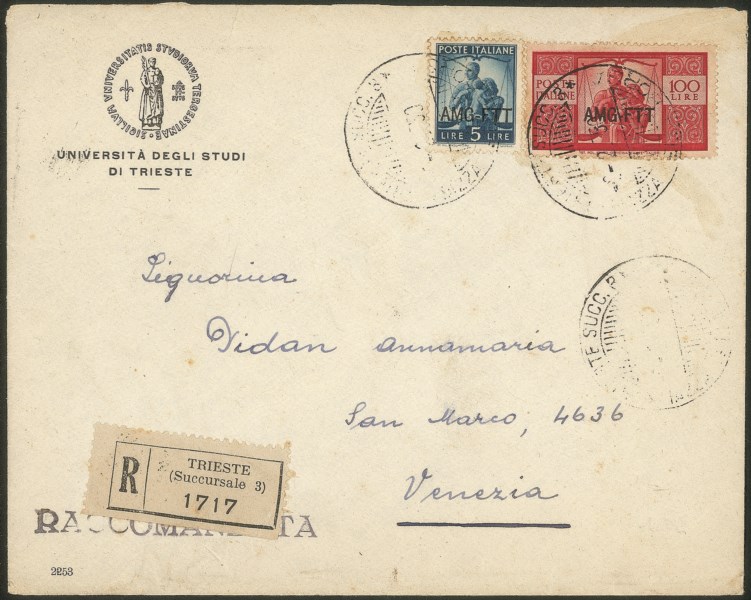 SIGILLVM VNIVERSITATIS STVDIORVM TERGESTINAE
UNIVERSITÀ DEGLI STUDI
DI TRIESTE
POSTE ITALIANE
AMG-FTT
LIRE 5 LIRE
POSTE
ITALIANE
100
LIRE
AMG-FTT
SUCC. 8
TRIESTE SUCC. 8
TE SUCC. 8
Signorina
Vidan Annamaria
San Marco, 4636
Venezia
R
TRIESTE
(Succursale 3)
1717
2253